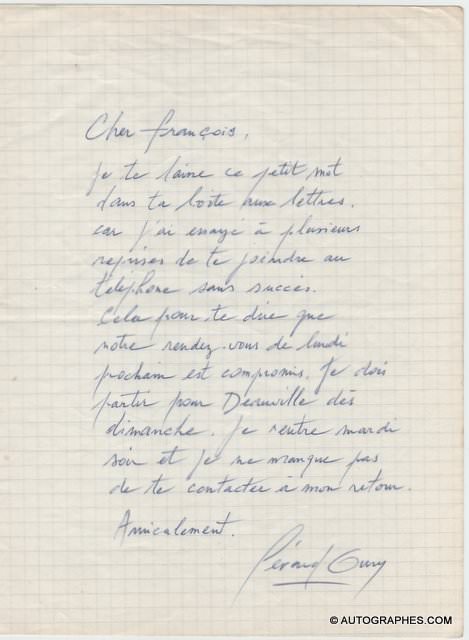 Cher François,
Je te laisse ce petit mot
dans ta boîte aux lettres.
car j'ai essayé à plusieurs
reprises de te joindre au
téléphone sans succès.
Cela pour te dire que
notre rendez-vous de lundi
prochain est compromis. Je dois
partir pour Deauville dès
dimanche. Je rentre mardi
soir et je ne manque pas
de te contacter à mon retour.
Amicalement.
Gérard Oury
© AUTOGRAPHES.COM